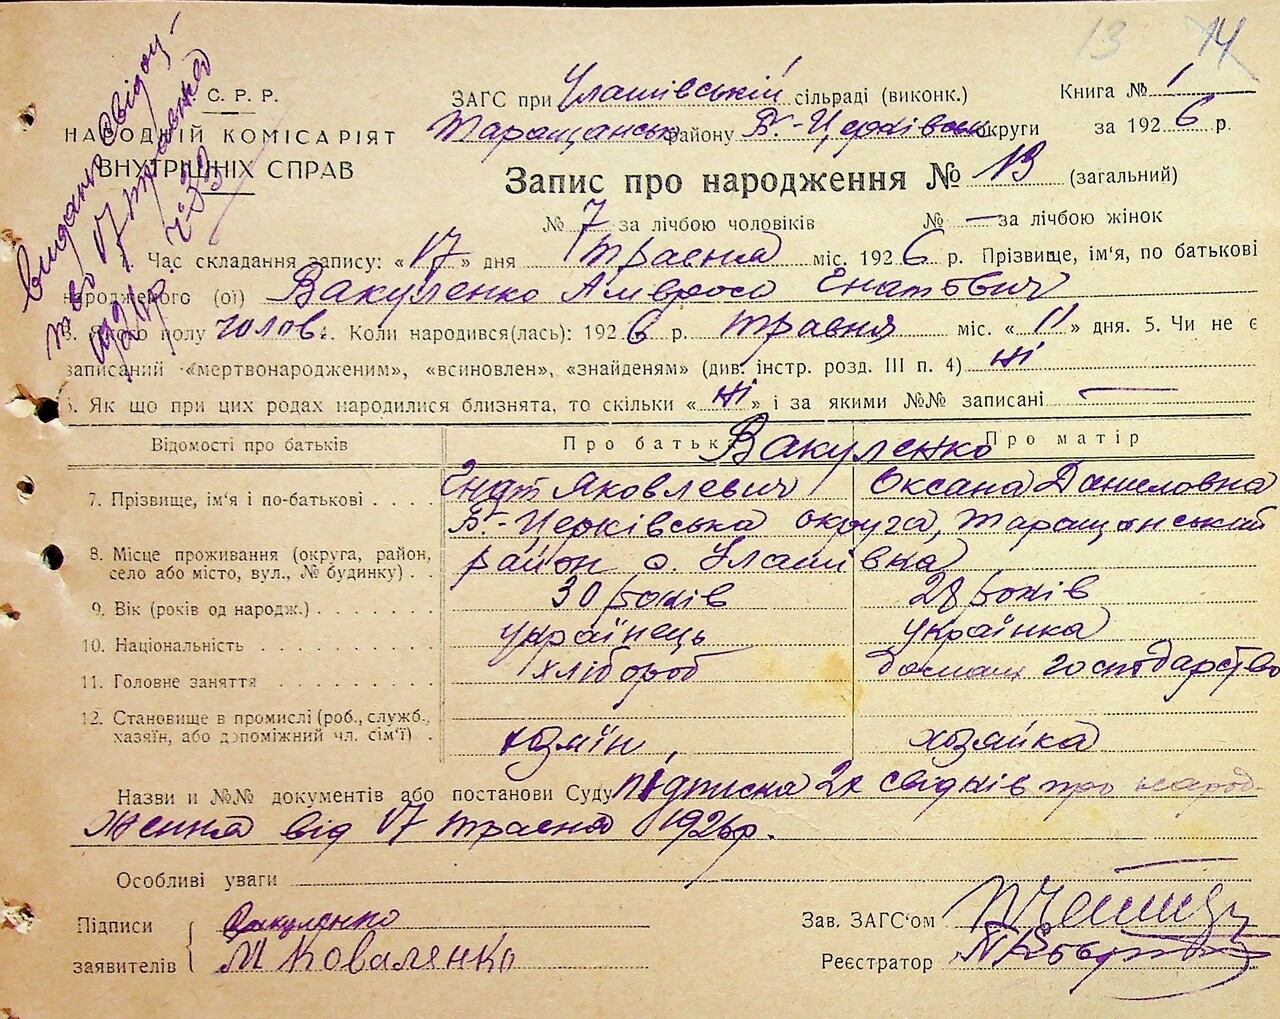 13 14
С. Р. Р.
НАРОДНІЙ КОМІСАРІЯТ
ВНУТРІШНІХ СПРАВ
Видано свідоц-
тво 17 травня
1926р. ч. 33
ЗАГС при Улашівській сільраді (виконк.) Книга № 1
Таращанськ району Б.-Церківськ округи за 1926 р.
Запис про народження № 13 (загальний)
№ 7 за лічбою чоловіків № — за лічбою жінок
Час складання запису: «17» дня Травня міс. 1926 р. Прізвище, ім'я, по батькові
народженого (ої) Вакуленко Амвросій Гнатович
полу чолов. 4. Коли народився(лась): 1926 р. травня міс. «11» дня. 5. Чи не є
записаний «мертвонародженим», «всиновлен», «знайденям» (див. інстр. розд. III п. 4) ні
6. Як що при цих родах народилися близнята, то скільки «ні» і за якими №№ записані —
Відомості про батьків Про батька Про матір
Вакуленко
7. Прізвище, ім'я і по-батькові . . . . Гнат Яковлевич Оксана Даниловна
8. Місце проживання (округа, район, село або місто, вул., № будинку) . . Б.-Церківська округа, Таращанський
район с. Улашівка
9. Вік (років од народж.) . . . . . . . 30 років 28 років
10. Національність . . . . . . . . . українець українка
11. Головне заняття . . . . . . . . хлібороб домашн господарство
12. Становище в промислі (роб., служб., хазяїн, або допоміжний чл. сім'ї) . хазяїн, хозяйка
Назви и №№ документів або постанови Суду підписка 2х свідків про народ-
ження від 17 травня 1926р.
Особливі уваги
Підписи заявителів Вакуленко
М Коваленко
Зав. ЗАГС'ом
Реєстратор